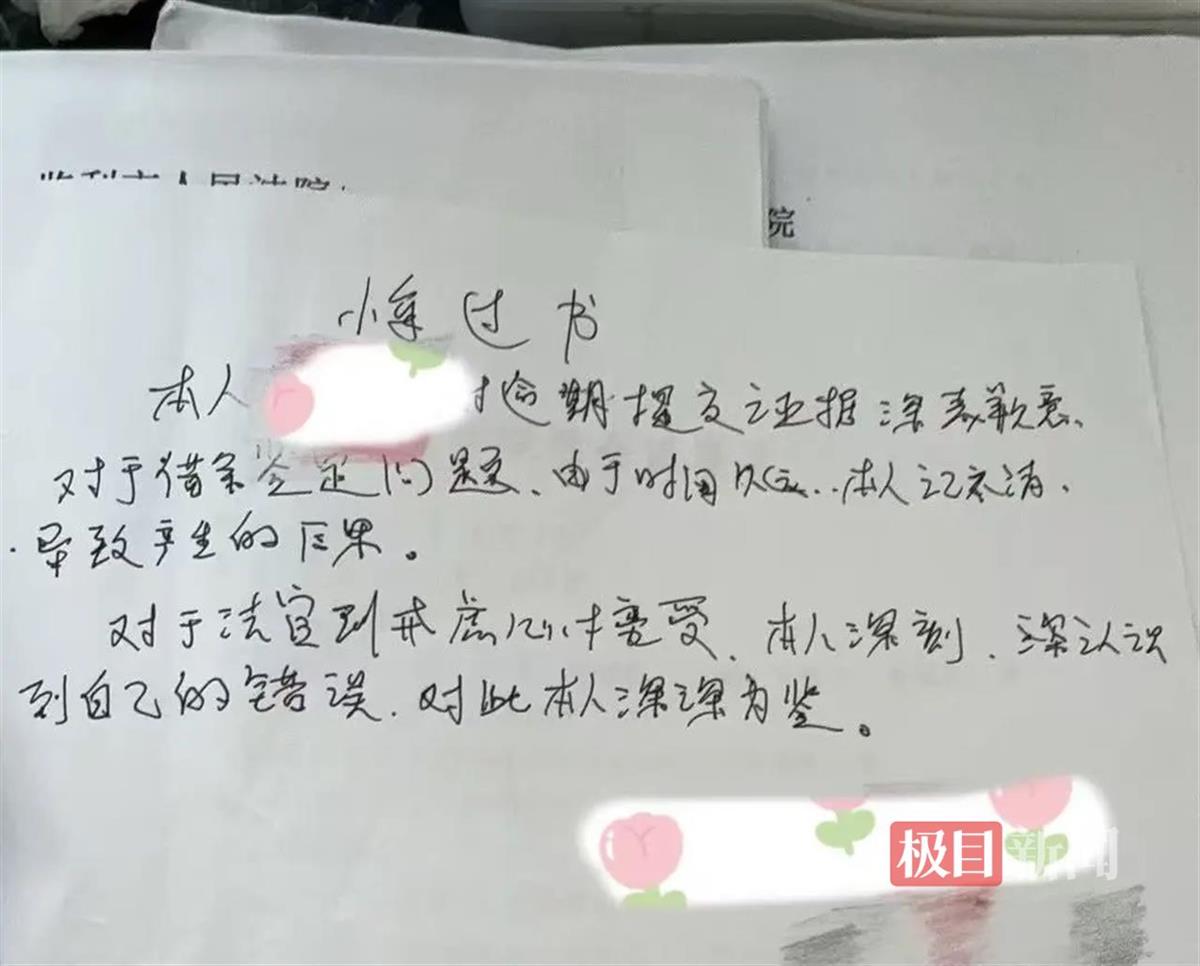 监利市人民法院:
院
悔过书
本人 对逾期提交证据深表歉意、
对于借条鉴定问题、由于时间久远..本人记不清、
导致产生的后果。
对于法官训戒虚心接受、本人深刻、深认识
到自己的错误、对此本人深深为鉴。
极目新闻